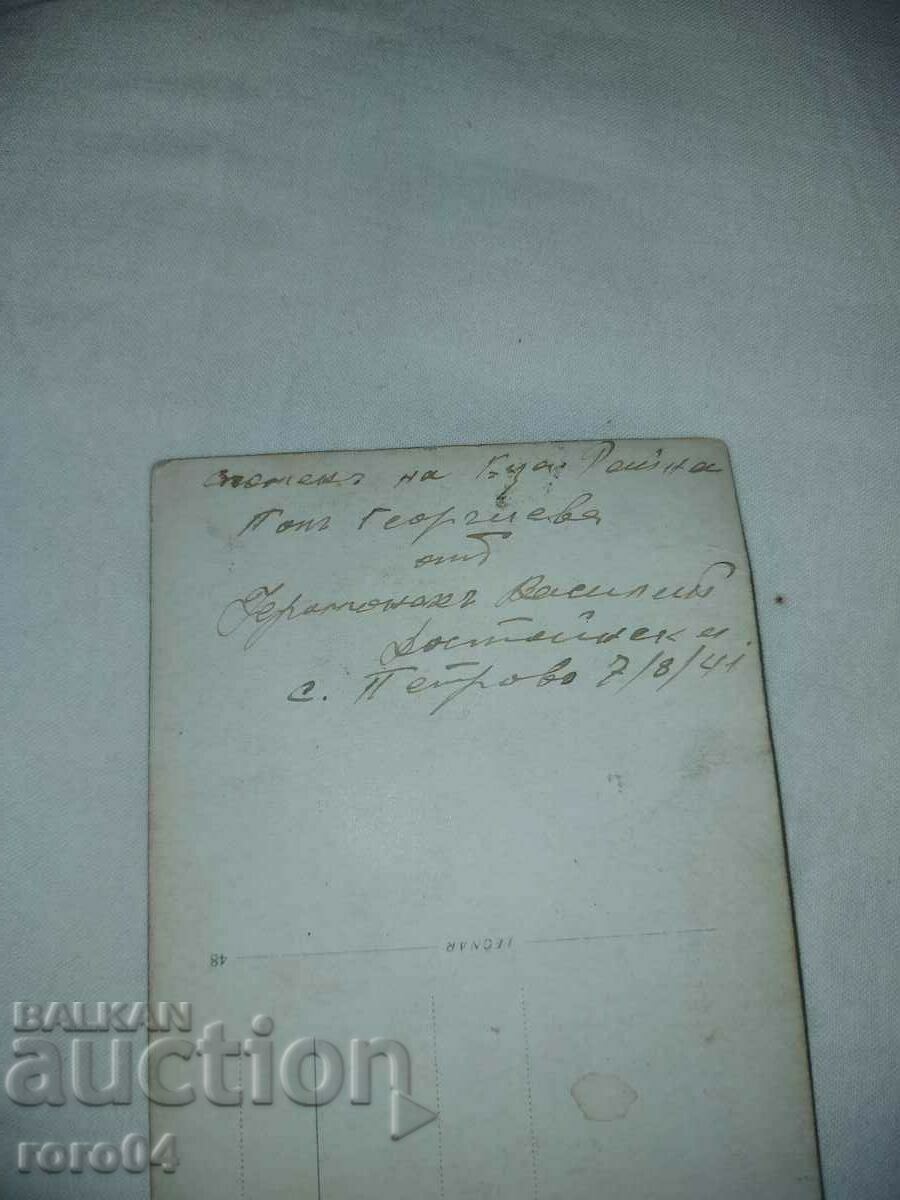 спомень на Г-ца Райна
Поп Георгиева
отъ
Иеромонахъ Василий
Достойнски
с. Петрово 7/8/41
LEONAR
48
BALKAN
auction
roro04